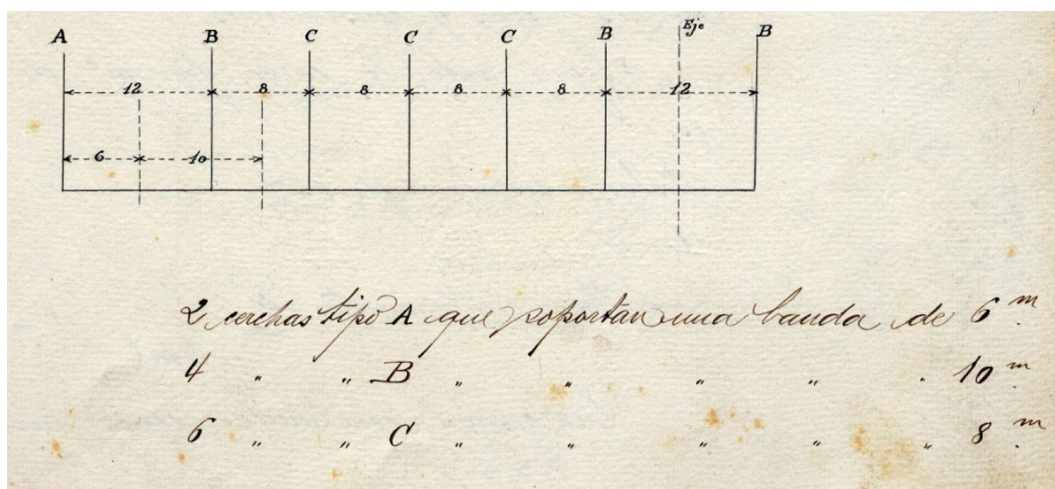 A B C C C B Eje B
12 8 8 8 8 12
6 10
2 cerchas tipo A que soportan una banda de 6 m.
4 " " B " " " " " 10 m.
6 " " C " " " " " 8 m.